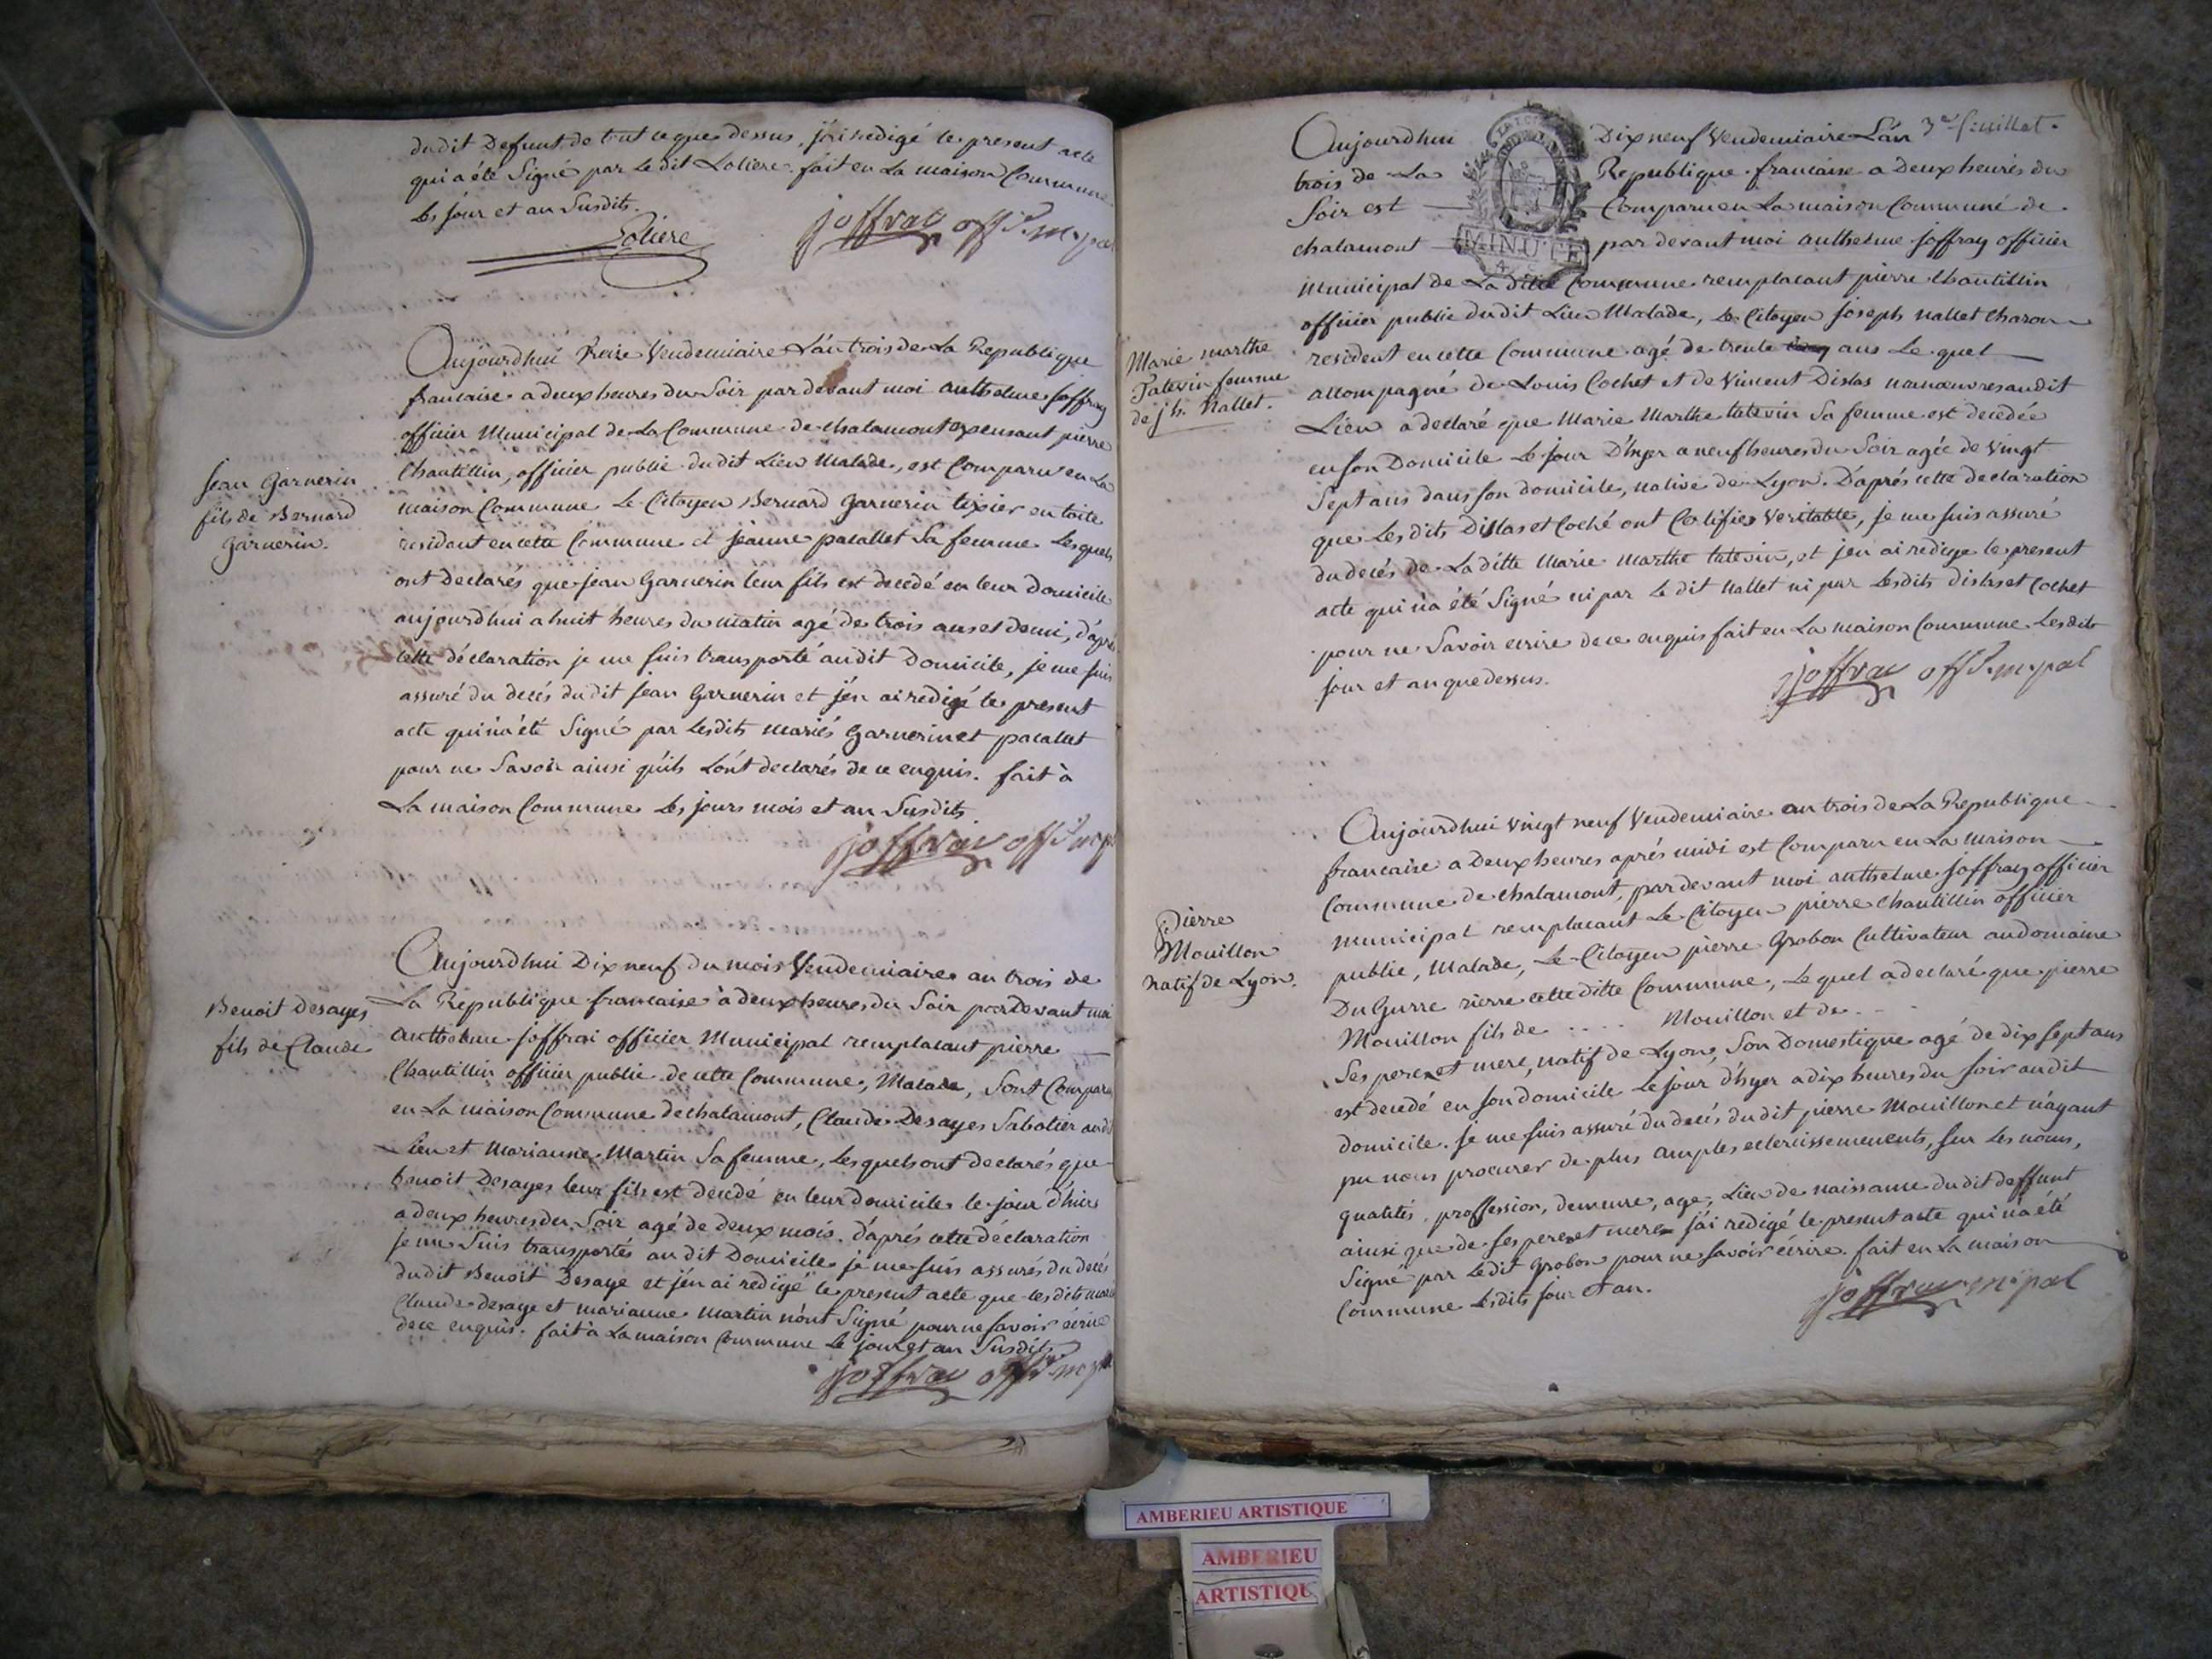 dudit Defunt, de tout ce que dessus, j'ai redigé le present acte
qui a été Signé par Le dit Loliere. fait en La maison Commune
Les jour et an Susdits.
Loliere
joffray off. mpal
Aujourdhui treize Vendemiaire L'an trois de La Republique
francaise a deux heures du Soir par devant moi Anthelme joffray
officier Municipal de La Commune de chalamont pierre
Chantillin, officier public dudit Lieu Malade, est Comparu en La
maison Commune Le Citoyen Bernard Garnerin tixier en toile
residant en cette Commune et jeanne pacallet Sa femme Lesquels
ont declarés que jean Garnerin leur fils est decedé en leur Domicile
aujourdhui a huit heures du matin agé de trois ans et demi, d'aprés
cette déclaration je me suis transporté audit Domicile, je me suis
assuré du decés dudit jean Garnerin et j'en ai redigé le present
acte qui n'a été Signé par Lesdits mariés Garnerin et pacallet
pour ne Savoir ainsi qu'ils L'ont declarés de ce enquis. fait à
La maison Commune Les jours mois et an Susdits.
joffray off. mpal
Jean Garnerin
fils de Bernard
Garnerin.
Aujourdhui Dix neuf du mois Vendemiaire an trois de
La Republique francaise a deux heures du Soir par Devant moi
Anthelme joffrai officier Municipal remplacant pierre
Chantillin officier public de cette Commune, Malade, Sont Comparu
en La maison Commune de chalamont, Claude Desayes Sabotier audit
Lieu et Marianne Martin Sa femme, Lesquels ont declarés que
benoit Desayes leur fils est decedé en leur domicile le jour d'hier
a deux heures du Soir agé de deux mois. d'aprés cette déclaration
je me Suis transportés au dit Domicile je me suis assurés du decés
dudit Benoit Desaye et j'en ai redigé le present acte que les dits mariés
Claude desaye et marianne Martin n'ont Signé pour ne savoir écrire
de ce enquis. fait à La maison Commune Le jour et an Susdits
joffray off. mpal
Benoit Desayes
fils de Claude
3e feuillet.
Aujourdhui Dix neuf Vendemiaire L'an
trois de La Republique francaise a Deux heures du
Soir est Comparu en La maison Commune de
chalamont par devant moi anthelme joffray officier
MINUTE
municipal de La ditte Commune remplacant pierre Chantillin
officier public dudit Lieu Malade, Le Citoyen joseph Nallet Charon
resident en cette Commune agé de trente ans Le quel
accompagné de Louis Cochet et de Vincent Dislas manœuvres audit
Lieu a declaré que Marie Marthe tatevin Sa femme est decedée
en son Domicile Le jour D'hyer a neuf heures du Soir agée de Vingt
Sept ans dans son domicile, native de Lyon. D'aprés cette declaration
que Les dits Dislas et Coché ont Certifiés Veritable, je me suis assuré
du decés de La ditte Marie Marthe tatevin, et j'en ai redigé le present
acte qui n'a été Signé ni par Le dit Nallet ni par Lesdits dislas et Cochet
pour ne Savoir écrire de ce enquis fait en La maison Commune Lesdits
jour et an que dessus.
joffray off. mpal
Marie marthe
Tatevin femme
de jh. Nallet.
Aujourdhui vingt neuf Vendemiaire an trois de La Republique
francaise a Deux heures aprés midi est Comparu en La maison
Commune de chalamont, par devant moi anthelme joffray officier
municipal remplacant Le Citoyen pierre Chantillin officier
public, Malade, Le Citoyen pierre Grobon Cultivateur au domaine
Du Gurre rierre cette ditte Commune, Le quel a declaré que pierre
Mouillon fils de .... Mouillon et de ..
Ses pere et mere, natif de Lyon, Son Domestique agé de dix sept ans
est decedé en son domicile Le jour d'hyer a dix heures du soir audit
domicile. je me suis assuré du decés dudit pierre Mouillon et n'ayant
pu nous procurer de plus amples eclercissements, sur Les noms,
qualités, proffession, demeure, age, Lieu de naissance dudit deffunt
ainsi que de ses pere et mere j'ai redigé le present acte qui n'a été
Signé par Ledit Grobon pour ne savoir écrire. fait en La maison
Commune Lesdits jour et an.
joffray mpal
Pierre
Mouillon
natif de Lyon.
AMBERIEU ARTISTIQUE
AMBERIEU
ARTISTIQU